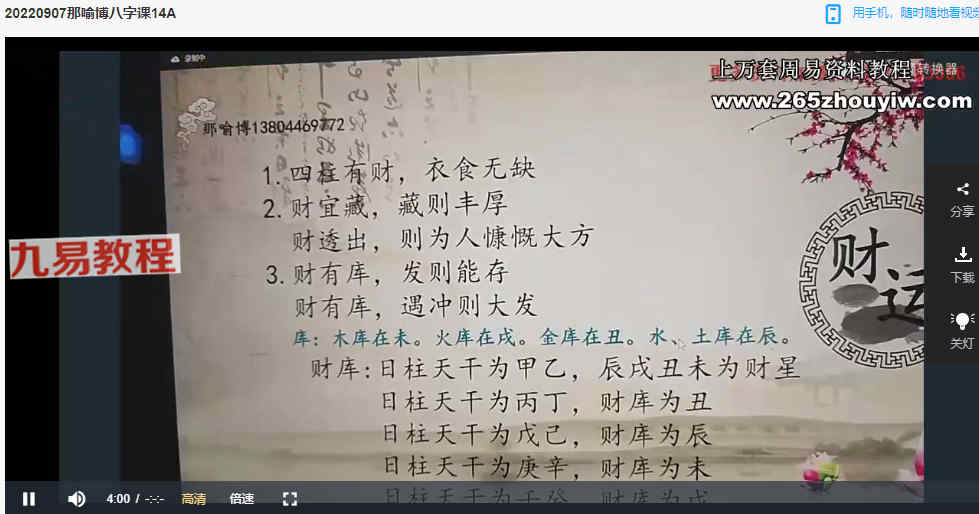 20220907那喻博八字课14A
用手机，随时随地看视频
录制中
上万套周易资料教程
转换器
www.265zhouyiw.com
那喻博13804469772
1.四柱有财，衣食无缺
2.财宜藏，藏则丰厚
财透出，则为人慷慨大方
3.财有库，发则能存
财有库，遇冲则大发
库：木库在未。火库在戌。金库在丑。水、土库在辰。
财库：日柱天干为甲乙，辰戌丑未为财星
日柱天干为丙丁，财库为丑
日柱天干为戊己，财库为辰
日柱天干为庚辛，财库为未
日柱天干为壬癸，财库为戌
财运
九易教程
分享
下载
关灯
4:00 / -:-:-
高清
倍速